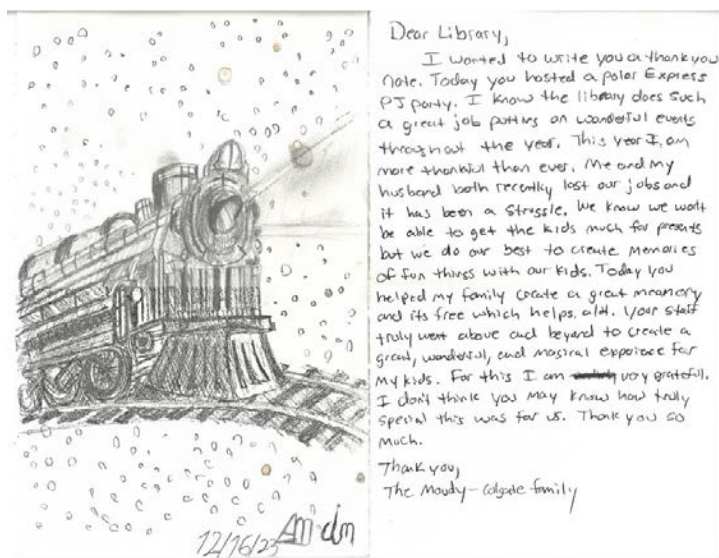 12/16/23 AM-clm
Dear Library,
I wanted to write you a thank you
note. Today you hosted a polar Express
PJ party. I know the library does such
a great job putting on wonderful events
throughout the year. This year I am
more thankful than ever. Me and my
husband both recently lost our jobs and
it has been a struggle. We know we wont
be able to get the kids much for presents
but we do our best to create memories
of fun things with our kids. Today you
helped my family create a great meomory
and its free which helps alot. Your staff
truly went above and beyond to create a
great, wonderful, and magical expeirece for
my kids. For this I am very grateful.
I don't think you may know how truly
special this was for us. Thank you so
much.
Thank you,
The Moudy-Colgate family